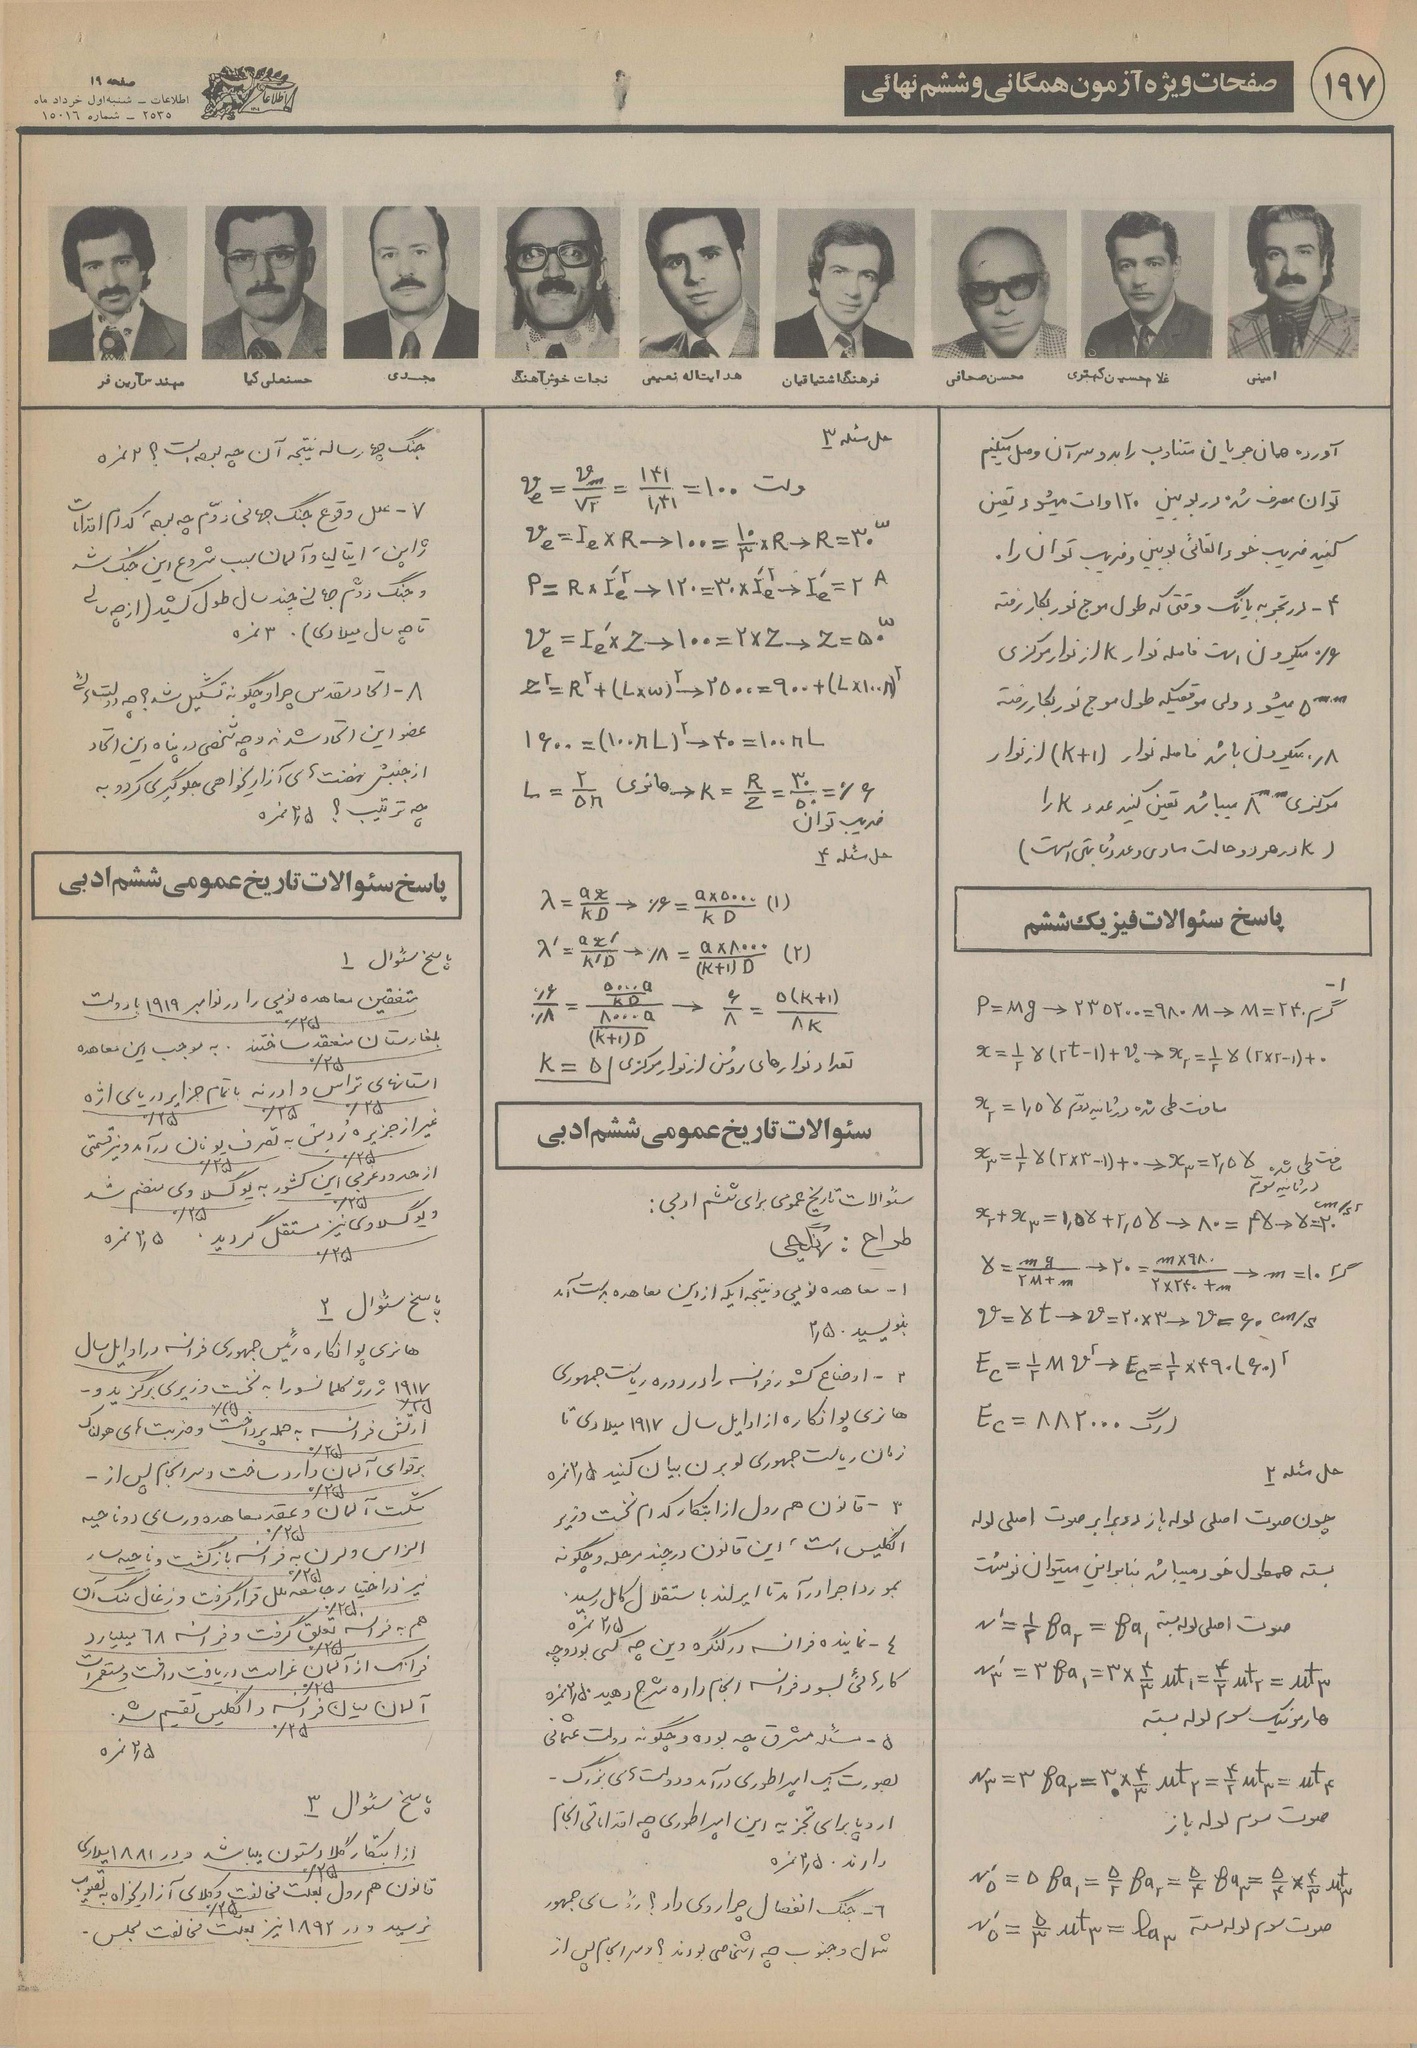 ۱۹۷
صفحات ویژه آزمون همگانی و ششم نهائی
صفحه ۱۹
اطلاعات – شنبه اول خرداد ماه
۲۵۳۵ – شماره ۱۵۰۱۶
اطلاعات
امینی
غلامحسین کهتری
محسن صحافی
فرهنگ اشتیاقیان
هدایت‌اله نعیمی
نجات خوش‌آهنگ
مجدی
حسنعلی کیا
مهندس آرین فر
آورده همان جریان متناوب را بدو سر آن وصل میکنیم
توان مصرف شده در بوبین ۱۲۰ وات میشود تعیین
کنید ضریب خود القائی بوبین و ضریب توان را.
۴- در تجربه یانگ وقتی که طول موج نور بکار رفته
۰/۶ میکرون است فاصله نوار K از نوار مرکزی
۵mm میشود ولی موقعیکه طول موج نور بکار رفته
۰/۸ میکرون باشد فاصله نوار (K+۱) از نوار
مرکزی ۸mm میباشد تعیین کنید عدد K را
( K در هر دو حالت مساوی و عدد ثابتی است)
پاسخ سئوالات فیزیک ششم
۱-
P=Mg → ۲۳۵۲۰۰=۹۸۰M → M=۲۴۰ گرم
x=½γ(۲t-۱)+v₀ → x₂=½γ(۲×۲-۱)+۰
x₂=۱,۵γ مسافت طی شده در ثانیه دوم
x₃=½γ(۲×۳-۱)+۰ → x₃=۲,۵γ مسافت طی شده
در ثانیه سوم
x₂+x₃=۱,۵γ+۲,۵γ → ۸۰=۴γ → γ=۲۰ cm/s²
γ=mg/(۲M+m) → ۲۰=(m×۹۸۰)/(۲×۲۴۰+m) → m=۱۰ گرم
v=γt → v=۲۰×۳ → v=۶۰ cm/s
Ec=½Mv² → Ec=½×۴۹۰(۶۰)²
Ec=۸۸۲۰۰۰ ارگ
حل مسئله ۲
چون صوت اصلی لوله باز دو برابر صوت اصلی لوله
بسته همطول خود میباشد بنابراین میتوان نوشت
N'=½ fa₂=fa₁ صوت اصلی لوله بسته
N'₃=۳fa₁=۳×۴/۳ ut₁=۴/۲ ut₂=ut₃
هارمونیک سوم لوله بسته
N₃=۳fa₂=۳×۴/۳ ut₂=۴/۲ ut₃=ut₴
صوت سوم لوله باز
N'₅=۵fa₁=۵/۲ fa₂=۵/۴ fa₃=۵/۴×۴/۳ ut₃
N'₅=۵/۳ ut₃=la₃ صوت سوم لوله بسته
حل مسئله ۳
Ve=Vm/√۲=۱۴۱/۱,۴۱=۱۰۰ ولت
Ve=Ie×R→۱۰۰=۱۰/۳×R→R=۳۰ω
P=R×I'e²→۱۲۰=۳۰×I'e²→I'e=۲A
Ve=I'e×Z→۱۰۰=۲×Z→Z=۵۰ω
Z²=R²+(L×ω)²→۲۵۰۰=۹۰۰+(L×۱۰۰π)²
۱۶۰۰=(۱۰۰πL)²→۴۰=۱۰۰πL
L=۲/۵π هانری → K=R/Z=۳۰/۵۰=۰/۶
ضریب توان
حل مسئله ۴
λ=ax/KD → ۰/۶=a×۵۰۰۰/KD (۱)
λ'=ax'/K'D → ۰/۸=a×۸۰۰۰/(K+۱)D (۲)
۰/۶ / ۰/۸ = (۵۰۰۰a/KD) / (۸۰۰۰a/(K+۱)D) → ۶/۸=۵(K+۱)/۸K
K=۵ تعداد نوارهای روشن از نوار مرکزی
سئوالات تاریخ عمومی ششم ادبی
سئوالات تاریخ عمومی برای ششم ادبی:
طراح:
۱- معاهده نویی و نتیجه ایکه از این معاهده بدست آمد
بنویسید. ۲,۵۰
۲- اوضاع کشور فرانسه را در دوره ریاست جمهوری
هانری پوانکاره از اوایل سال ۱۹۱۷ میلادی تا
زمان ریاست جمهوری لوبرن بیان کنید ۲,۵ نمره
۳- قانون هم رول از ابتکار کدام نخست وزیر
انگلیس است، این قانون در چند مرحله و چگونه
بمورد اجرا درآمد تا ایرلند با استقلال کامل رسید.
۲,۵ نمره
۴- نماینده فرانسه در کنگره وین چه کسی بود و چه
کارهائی بسود فرانسه انجام داده شرح دهید ۲,۵۰ نمره
۵- مسئله مشرق چه بوده و چگونه دولت عثمانی
بصورت یک امپراطوری درآمد و دولت‌های بزرگ-
اروپا برای تجزیه این امپراطوری چه اقداماتی انجام
دادند. ۲,۵۰ نمره
۶- جنگ انفصال چرا روی داد؟ رؤسای جمهور
شمال و جنوب چه اشخاصی بودند؟ و سرانجام پس از
جنگ چهارساله نتیجه آن چه بوده است؟ ۲ نمره
۷- علل وقوع جنگ جهانی دوّم چه بوده، کدام اقدامات
ژاپن، ایتالیا و آلمان سبب شروع این جنگ شد
و جنگ دوّم جهانی چند سال طول کشید (از چه سالی
تا چه سال میلادی). ۳ نمره
۸- اتحاد مقدس چرا و چگونه تشکیل شد؟ چه دولتهائی
عضو این اتحاد شدند و چه شخصی در پناه این اتحاد
از جنبش نهضت‌های آزادیخواهی جلوگیری کرد و به
چه ترتیب؟ ۲,۵ نمره
پاسخ سئوالات تاریخ عمومی ششم ادبی
پاسخ سئوال ۱
متفقین معاهده نویی را در نوامبر ۱۹۱۹ با دولت
۰/۲۵
بلغارستان منعقد ساختند. به موجب این معاهده
۰/۲۵
استانهای تراس و ادرنه با تمام جزایر دریای اژه
۰/۲۵ ۰/۲۵ ۰/۲۵
غیر از جزیره رُدِس به تصرف یونان درآمد و نیز قسمتی
۰/۲۵ ۰/۲۵
از حدود غربی این کشور به یوگسلاوی منضم شد
۰/۲۵ ۰/۲۵
و یوگسلاوی نیز مستقل گردید. ۲,۵ نمره
۰/۲۵
پاسخ سئوال ۲
هانری پوانکاره رئیس جمهوری فرانسه در اوایل سال
۱۹۱۷ ژرژ کلمانسو را به نخست وزیری برگزید و-
۰/۲۵ ۰/۲۵
ارتش فرانسه به حمله پرداخت و ضربت‌های هولناک
۰/۲۵
بر قوای آلمان وارد ساخت و سرانجام پس از-
۰/۲۵
شکست آلمان و عقد معاهده ورسای دو ناحیه
۰/۲۵
الزاس و لرن به فرانسه بازگشت و ناحیه سار
۰/۲۵
نیز در اختیار جامعه ملل قرار گرفت و زغال سنگ آن
۰/۲۵
هم به فرانسه تعلق گرفت و فرانسه ۶۸ میلیارد
۰/۲۵
فرانک از آلمان غرامت دریافت داشت و مستعمرات
۰/۲۵
آلمان میان فرانسه و انگلیس تقسیم شد.
۰/۲۵
۲,۵ نمره
پاسخ سئوال ۳
از ابتکار گلادستون میباشد و در ۱۸۸۱ میلادی
۰/۲۵
قانون هم رول بعلت مخالفت وکلای آزادیخواه به تصویب
۰/۲۵
نرسید و در ۱۸۹۲ نیز بعلت مخالفت مجلس-